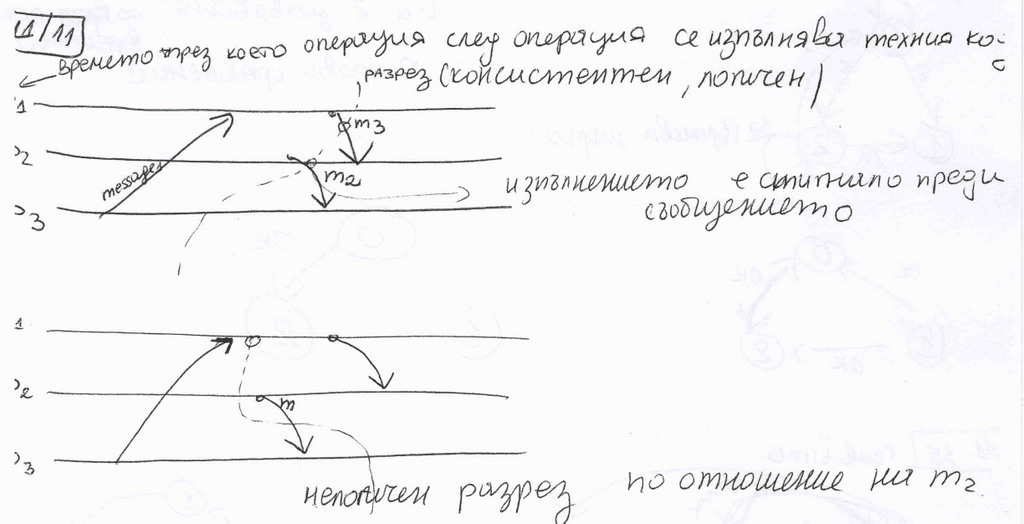 11/11
времето чрез което операция след операция се изпълнява техния ко
разрез (консистентен, логичен)
1
m3
2
messages
m2
изпълнението е стигнало преди
съобщението
3
1
2
m
3
нелогичен разрез по отношение на m2.